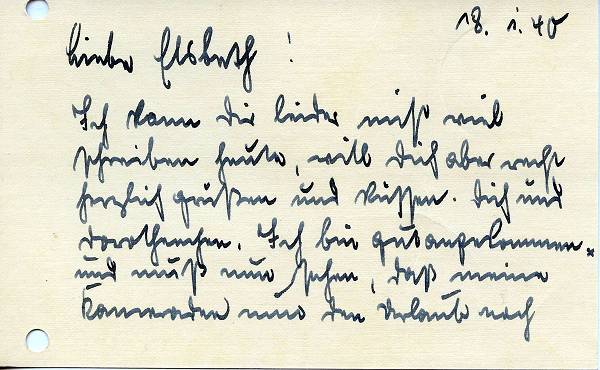 18. 1. 40
Liebe Elsbeth!
Ich kann Dir leider nicht viel
schreiben heute, will Dich aber recht
herzlich grüßen und küssen. Dich und
Dorotheechen. Ich bin gut angekommen.
und muß nun sehen, daß meine
Kameraden nun den Urlaub noch